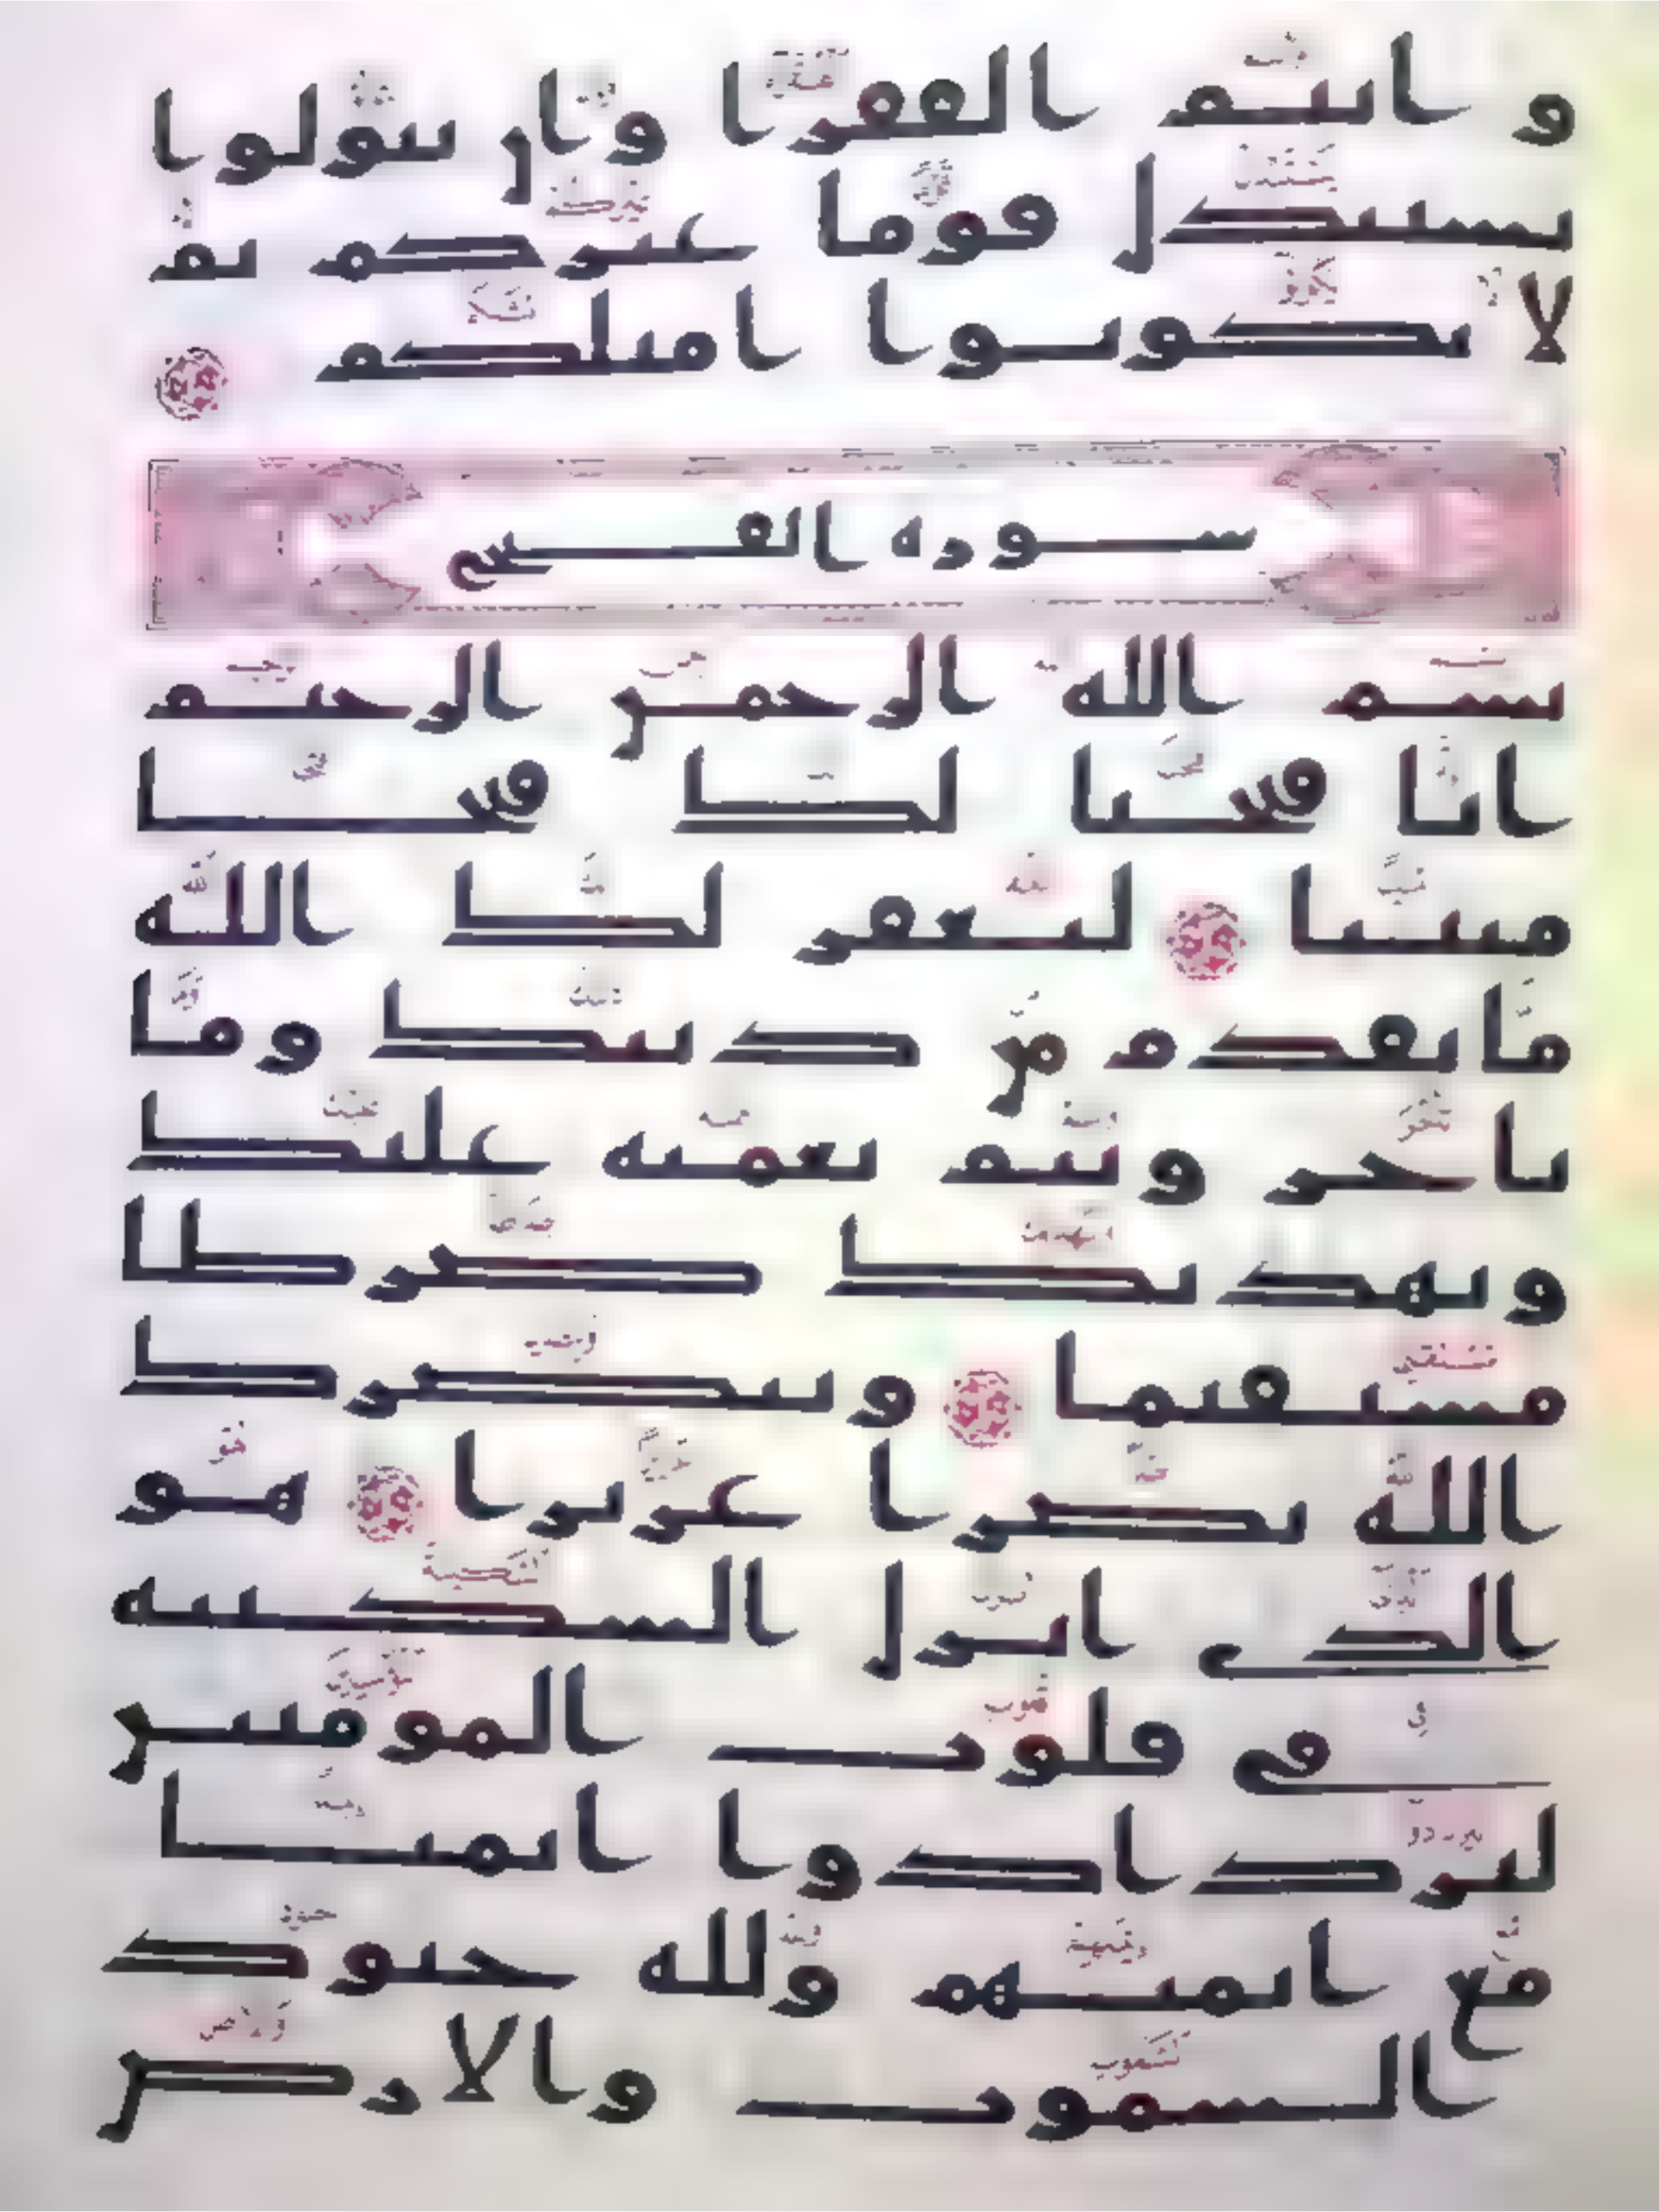 وانتم الفقرا وان تتولوا
يستبدل قوما غيركم ثم
لا يكونوا امثلكم
سورة الفتح
بسم الله الرحمن الرحيم
انا فتحنا لك فتحا
مبينا ليغفر لك الله
ما تقدم من ذنبك وما
تاخر ويتم نعمته عليك
ويهديك صرطا
مستقيما وينصرك
الله نصرا عزيزا هو
الذي انزل السكينة
في قلوب المومنين
ليزدادوا ايمنا
مع ايمنهم ولله جنود
السموت والارض